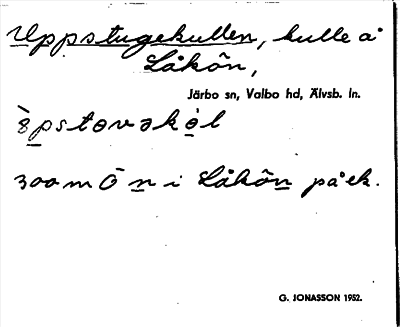 Uppstugekullen, kulle å
Låkôn,
Järbo sn, Valbo hd, Älvsb. ln.
300 m Ö n i Låkôn på ek.
G. JONASSON 1952.